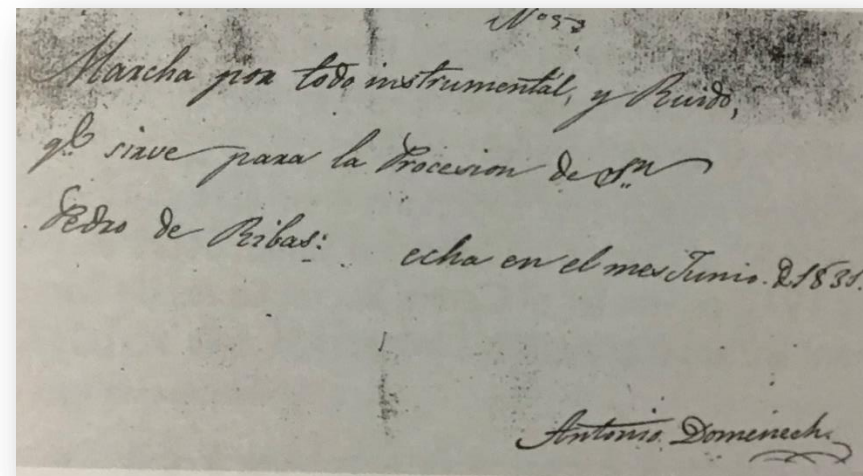 Nº 53
Marcha por todo instrumental, y Ruido,
qe. sirve para la Procesion de Sn.
Pedro de Ribas: echa en el mes Junio. D 1831.
Antonio Domenech